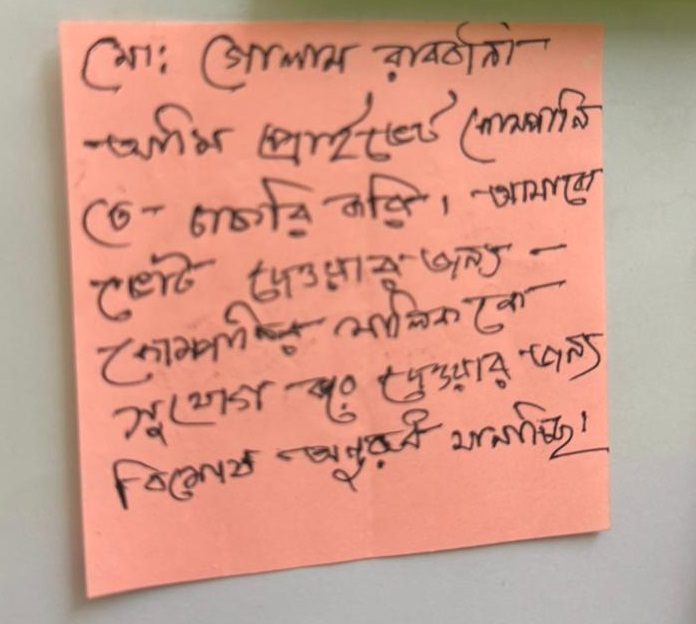 মো: গোলাম রাববানী
আমি প্রাইভেট কোম্পানি
তে চাকরি করি। আমাকে
ভোট দেওয়ার জন্য
কোম্পানির মালিক কে
সুযোগ করে দেওয়ার জন্য
বিশেষ অনুরধ যানাচ্ছি।